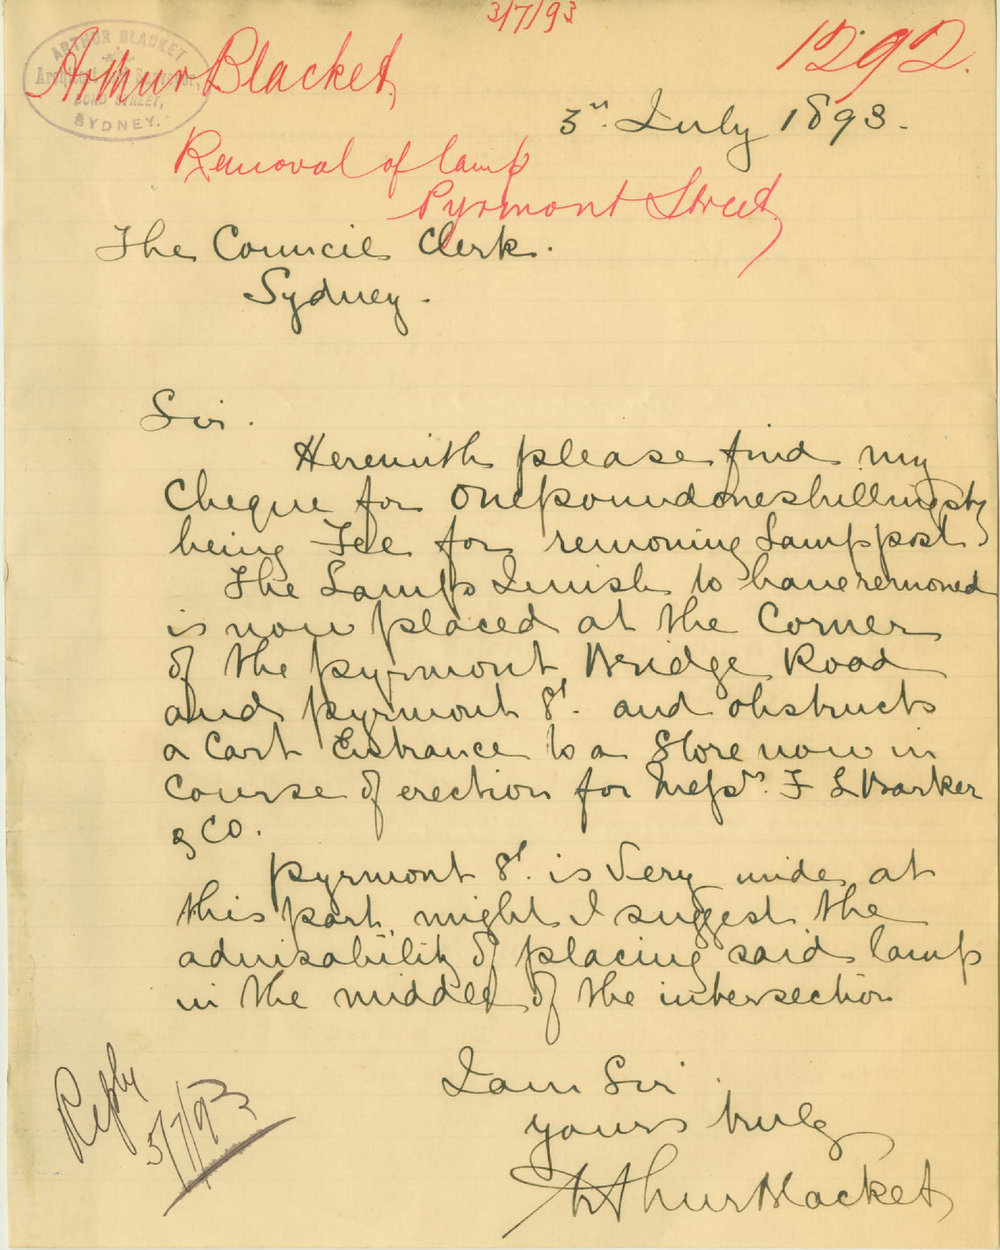 3/7/93
1292.
ARTHUR BLACKET
Architect & Surveyor,
BOND STREET,
SYDNEY.
Arthur Blacket,
3rd July 1893.
Removal of lamp
Pyrmont Street
The Council Clerk.
Sydney.
Sir.
Herewith please find my
Cheque for one pound one shilling stg
being Fee for removing Lamp post.
The Lamp I wish to have removed
is now placed at the Corner
of the pyrmont Bridge Road
and pyrmont St. and obstructs
a Cart Entrance to a Store now in
Course of erection for Messrs. F L Barker
& Co.
pyrmont St. is Very wide at
this part, might I suggest the
advisability of placing said lamp
in the middle of the intersection
I am Sir
yours truly
Arthur Blacket
Reply
5/7/93